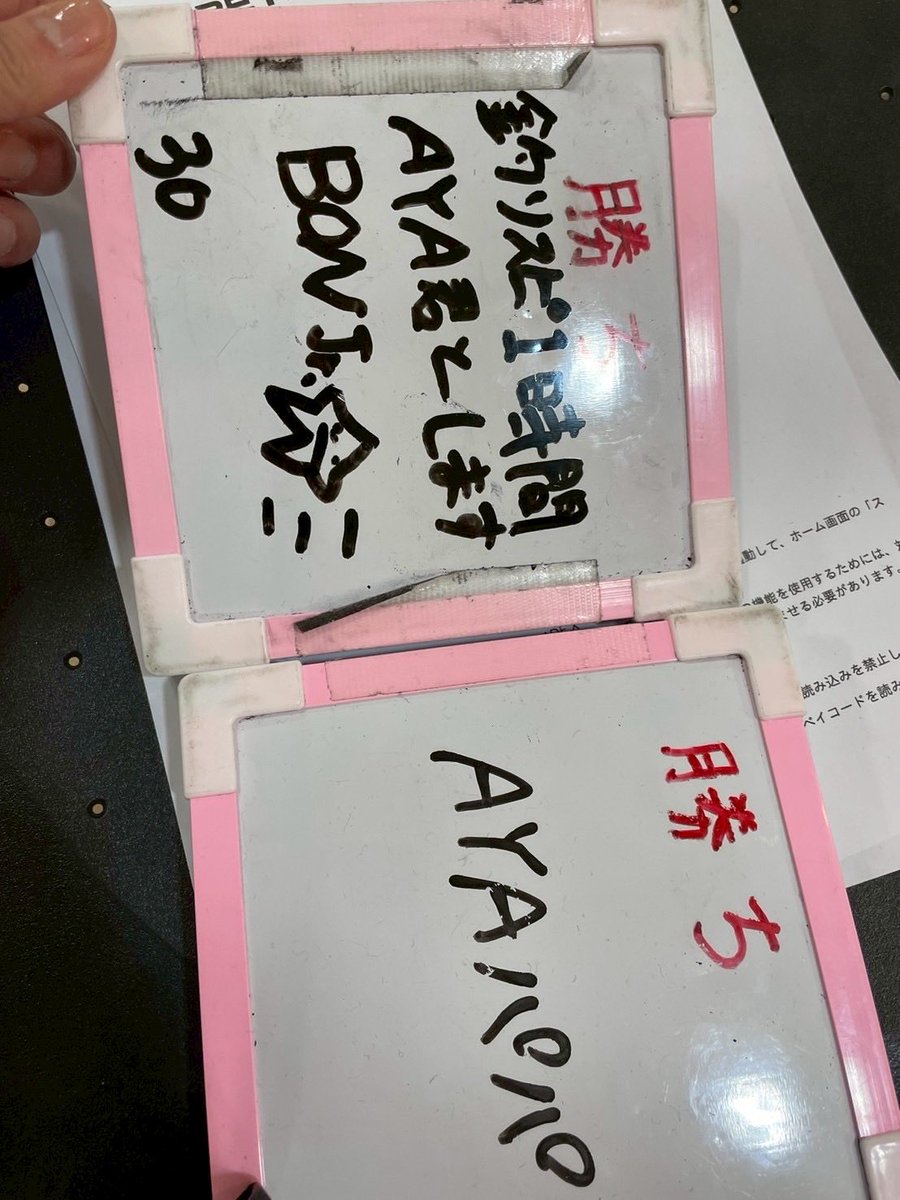 勝ち
釣りスピ1時間
AYA君とします
BON Jr.☆ミ
30
勝ち
AYAパパ
動して、ホーム画面の「ス
機能を使用するためには、
せる必要があります。
読み込みを禁止し
ペイコードを読み